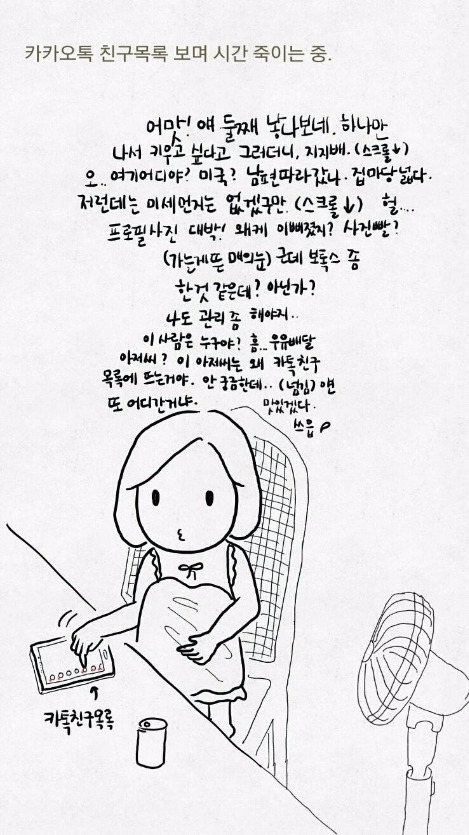 카카오톡 친구목록 보며 시간 죽이는 중.
어맛! 얘 둘째 낳나보네. 하나만
나서 키우고 싶다고 그러더니, 지지배. (스크롤↓)
오.. 여기어디야? 미국? 남편따라갔나. 집마당넓다.
저런데는 미세먼지는 없겠구만. (스크롤↓) 헐....
프로필사진 대박! 왜케 이뻐졌지? 사진빨?
(가늘게뜬 매의눈) 근데 보톡스 좀
한것 같은데? 아닌가?
나도 관리좀 해야지..
이 사람은 누구야? 흠.. 우유배달
아저씨? 이 아저씨는 왜 카톡친구
목록에 뜨는거야. 안 궁금한데.. (넘김) 얜
또 어디간거냐. 맛있겠다.
쓰읍
카톡친구목록